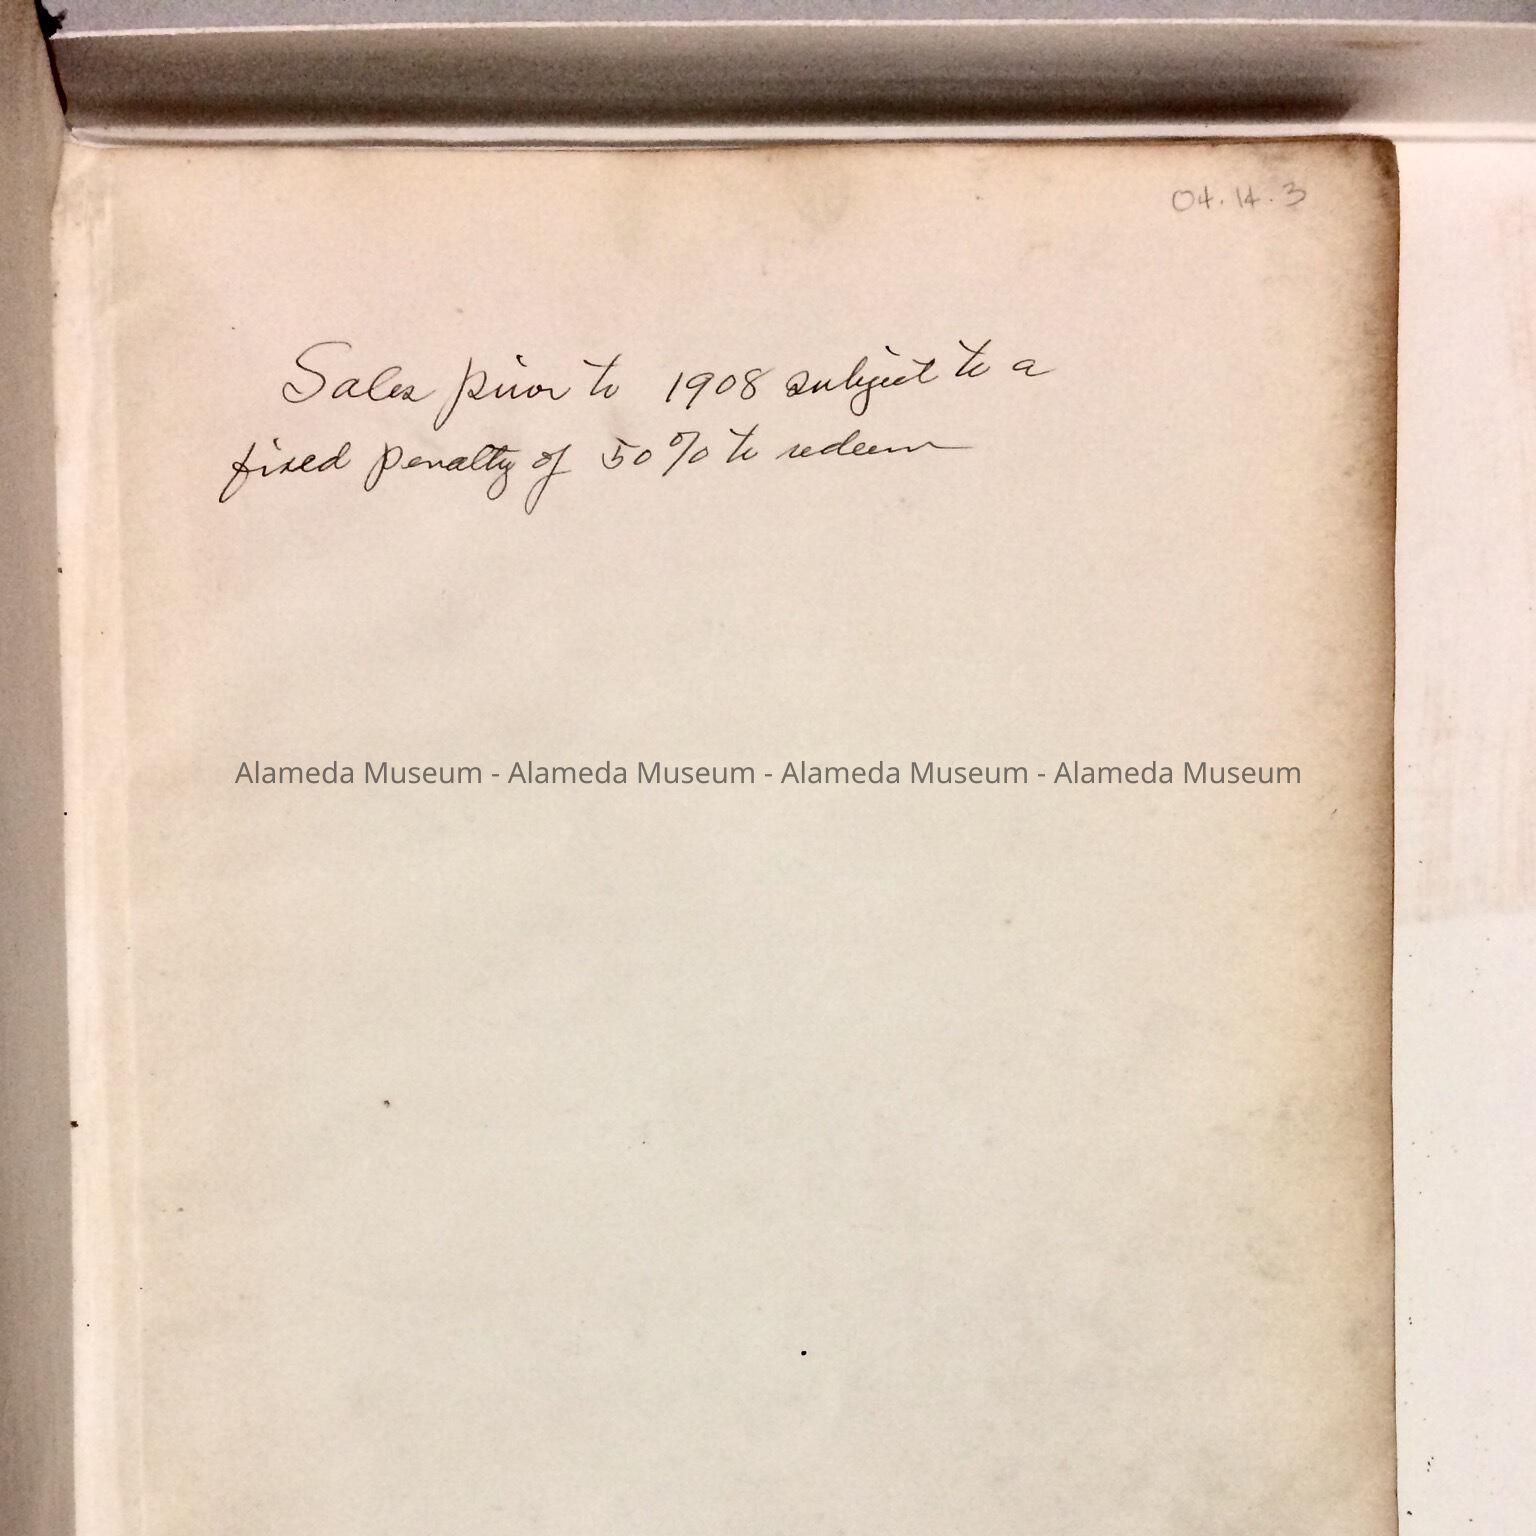 04.14.3
Sales prior to 1908 subject to a
fixed penalty of 50% to redeem
Alameda Museum - Alameda Museum - Alameda Museum - Alameda Museum